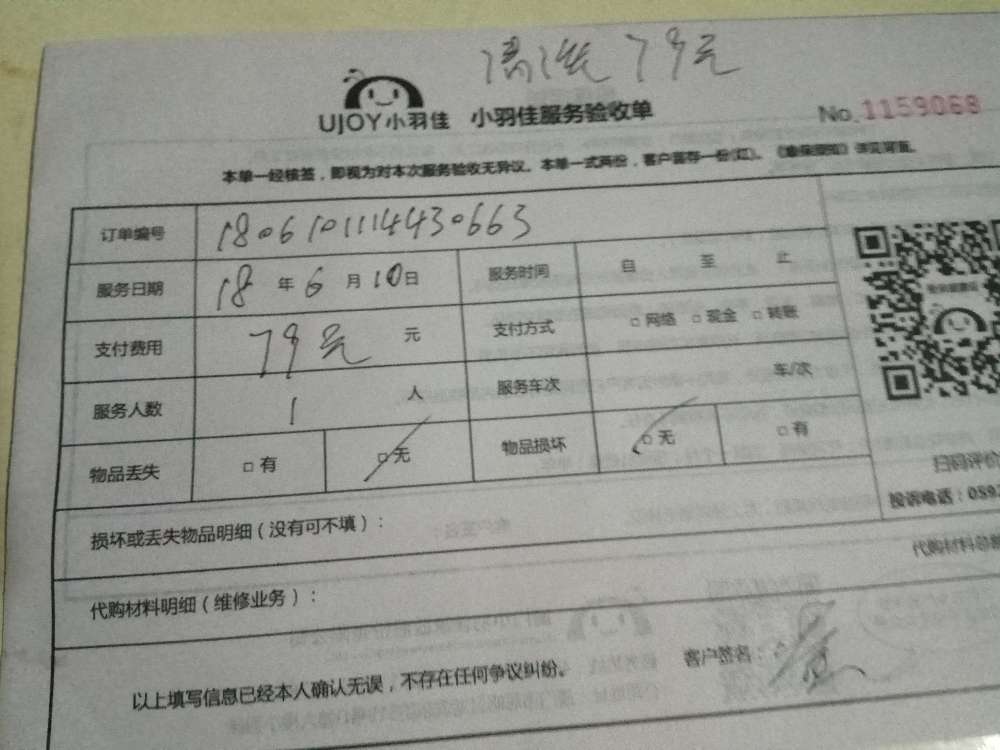 清洗79元
UJOY小羽佳 小羽佳服务验收单 No.1159068
本单一经核签，即视为对本次服务验收无异议。本单一式两份，客户留存一份(红)。
订单编号 1806101114430663
服务日期 18年6月10日 服务时间 自 至 止
支付费用 79元 元 支付方式 □网络 □现金 □转账
服务人数 1 人 服务车次 车/次
物品丢失 □有 □无 物品损坏 □无 □有
扫码评价
投诉电话：059
损坏或丢失物品明细（没有可不填）：
代购材料总
代购材料明细（维修业务）：
客户签名：
以上填写信息已经本人确认无误，不存在任何争议纠纷。